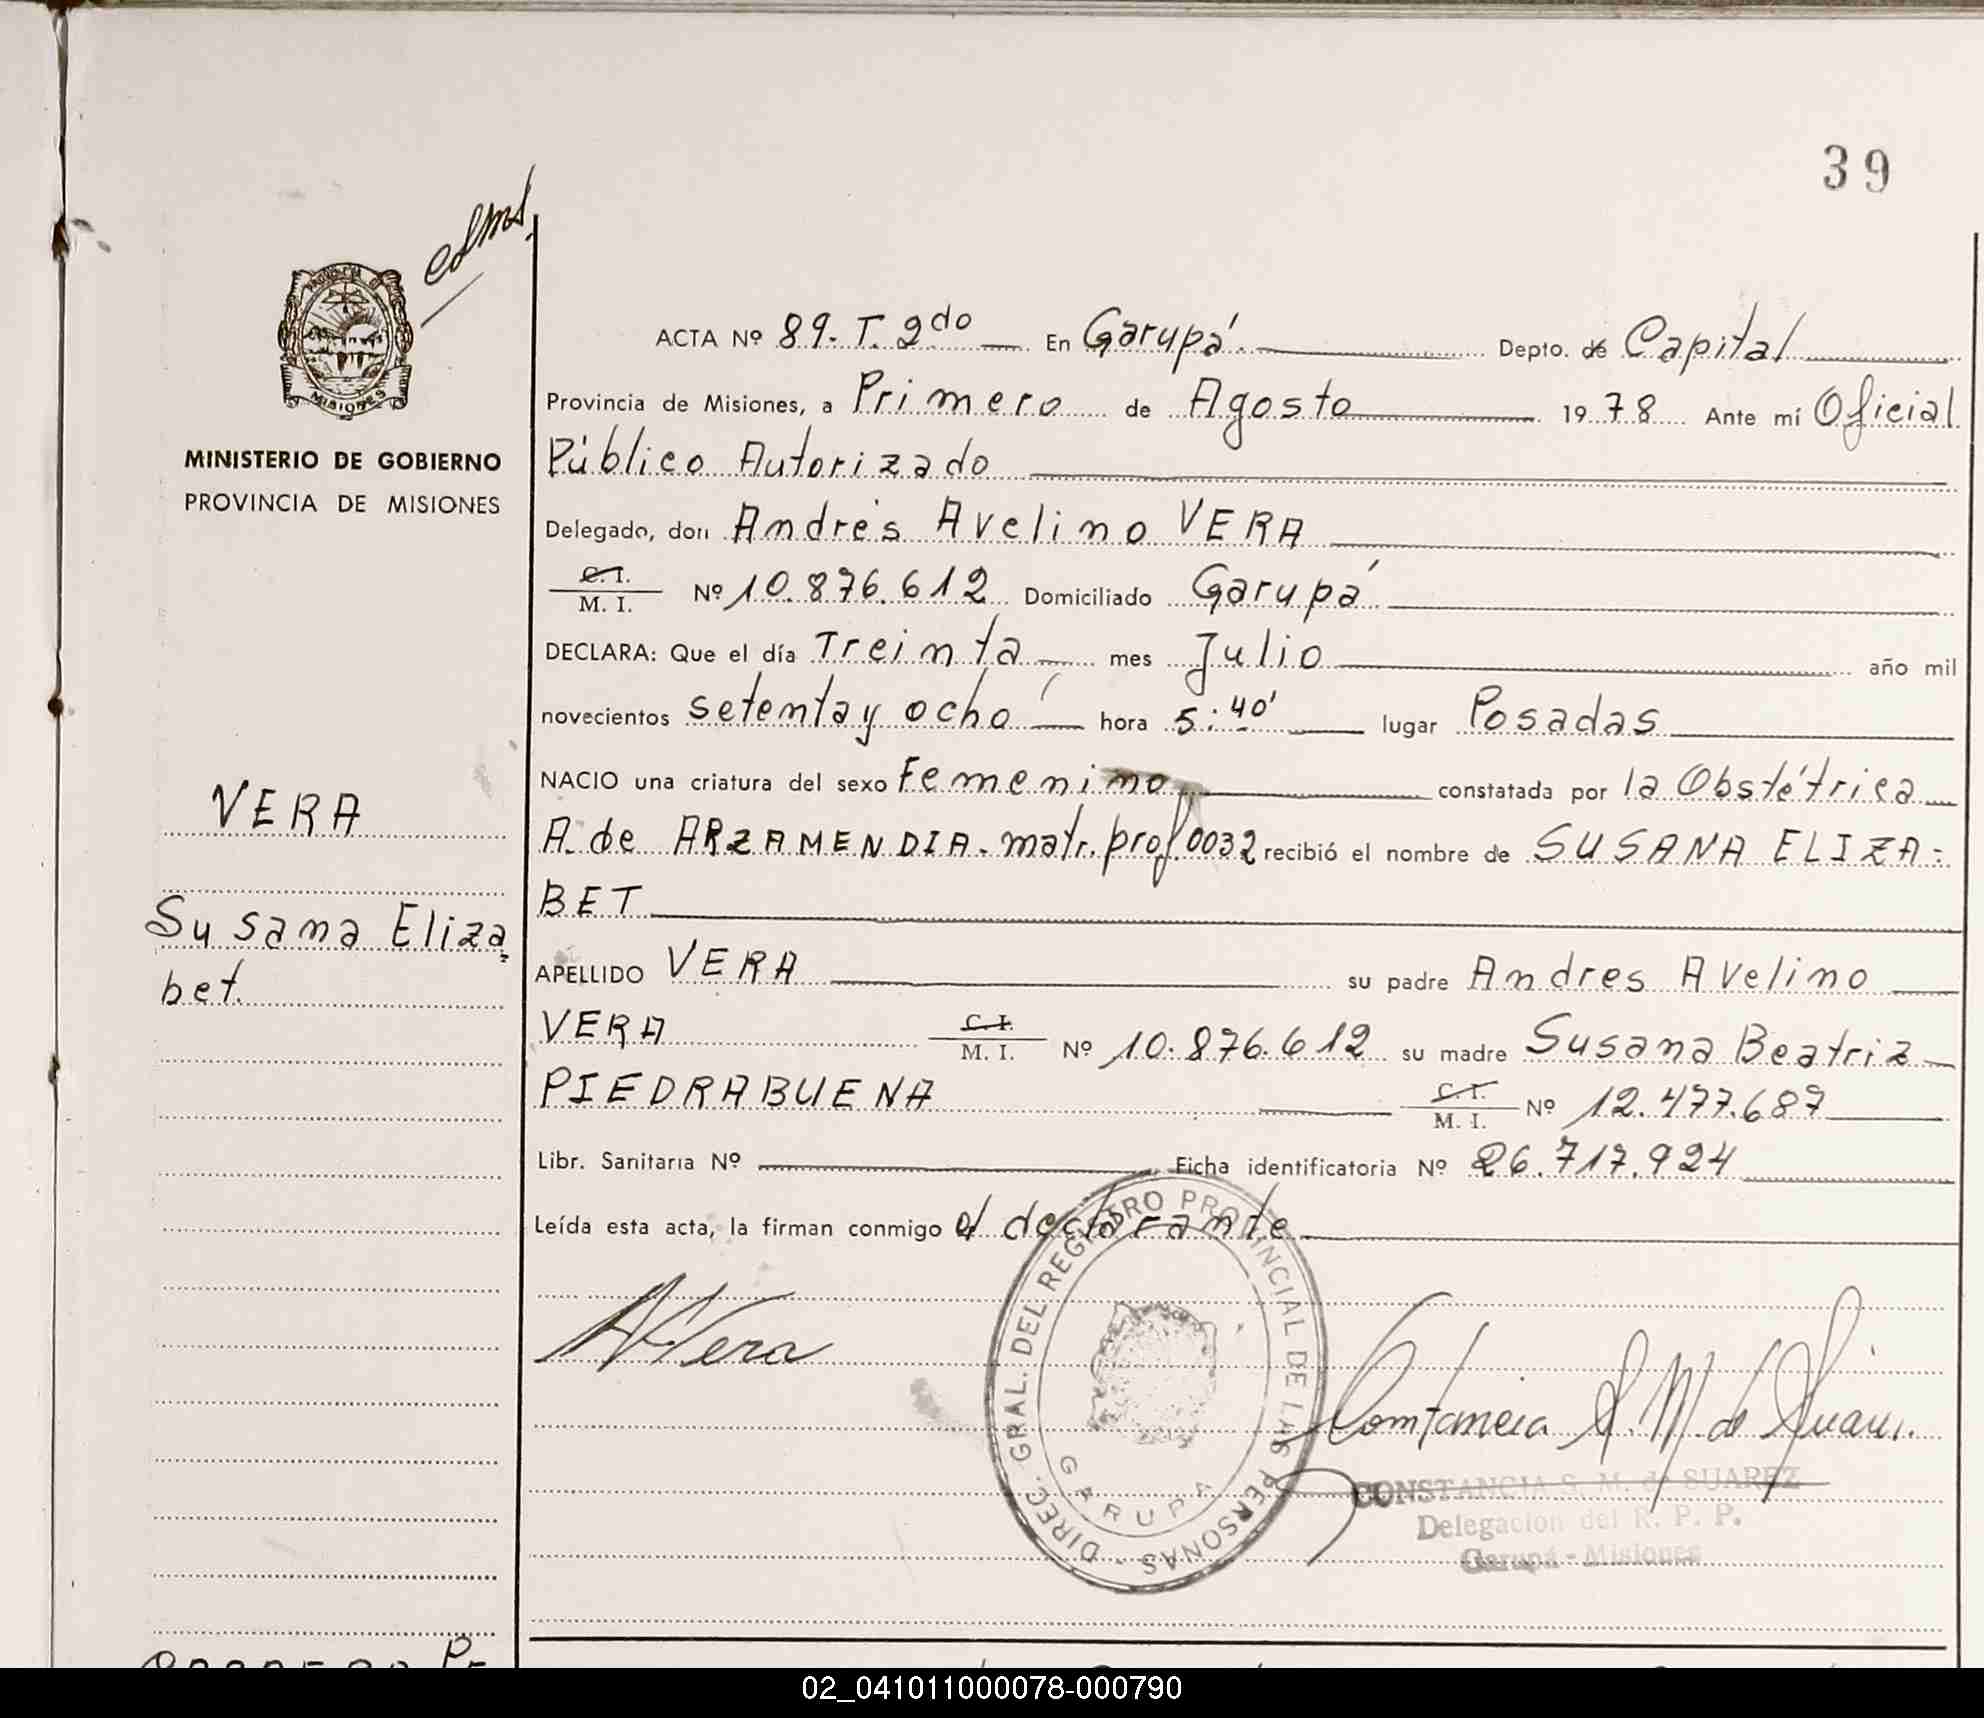 39
ACTA Nº 89. T. 2do En Garupá Depto. de Capital
Provincia de Misiones, a Primero de Agosto 1978 Ante mí Oficial
Público Autorizado
Delegado, don Andrés Avelino VERA
C. I.
M. I. Nº 10.876.612 Domiciliado Garupá
DECLARA: Que el día Treinta mes Julio año mil
novecientos setenta y ocho hora 5:40' lugar Posadas
NACIO una criatura del sexo Femenino constatada por la Obstétrica
A. de ARZAMENDIA. matr. prof. 0032 recibió el nombre de SUSANA ELIZA=
BET
APELLIDO VERA su padre Andres Avelino
VERA C. I. M. I. Nº 10.876.612 su madre Susana Beatriz
PIEDRABUENA C. I. M. I. Nº 12.477.687
Libr. Sanitaria Nº Ficha identificatoria Nº 26.717.924
Leída esta acta, la firman conmigo el declarante
MISIONES
MINISTERIO DE GOBIERNO
PROVINCIA DE MISIONES
VERA
Susana Eliza=
bet.
AVera
DIREC. GRAL. DEL REGISTRO PROVINCIAL DE LAS PERSONAS - GARUPA
Constancia S. M. de Suarez
CONSTANCIA S. M. de SUAREZ
Delegacion del R. P. P.
Garupá - Misiones
02_041011000078-000790